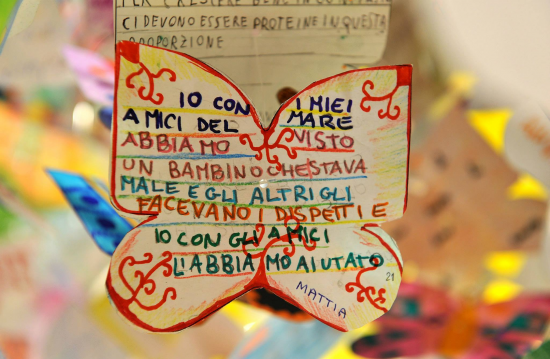 CI DEVONO ESSERE PROTEINE IN QUESTA
PROPORZIONE
IO CON I MIEI
AMICI DEL MARE
ABBIAMO VISTO
UN BAMBINO CHE STAVA
MALE E GLI ALTRI GLI
FACEVANO I DISPETTI E
IO CON GLI AMICI
L'ABBIAMO AIUTATO
21
MATTIA